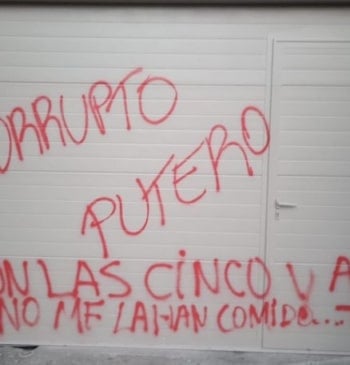 ORRUPTO
PUTERO
ON LAS CINCO Y A
NO ME LA HAN COMIDO...